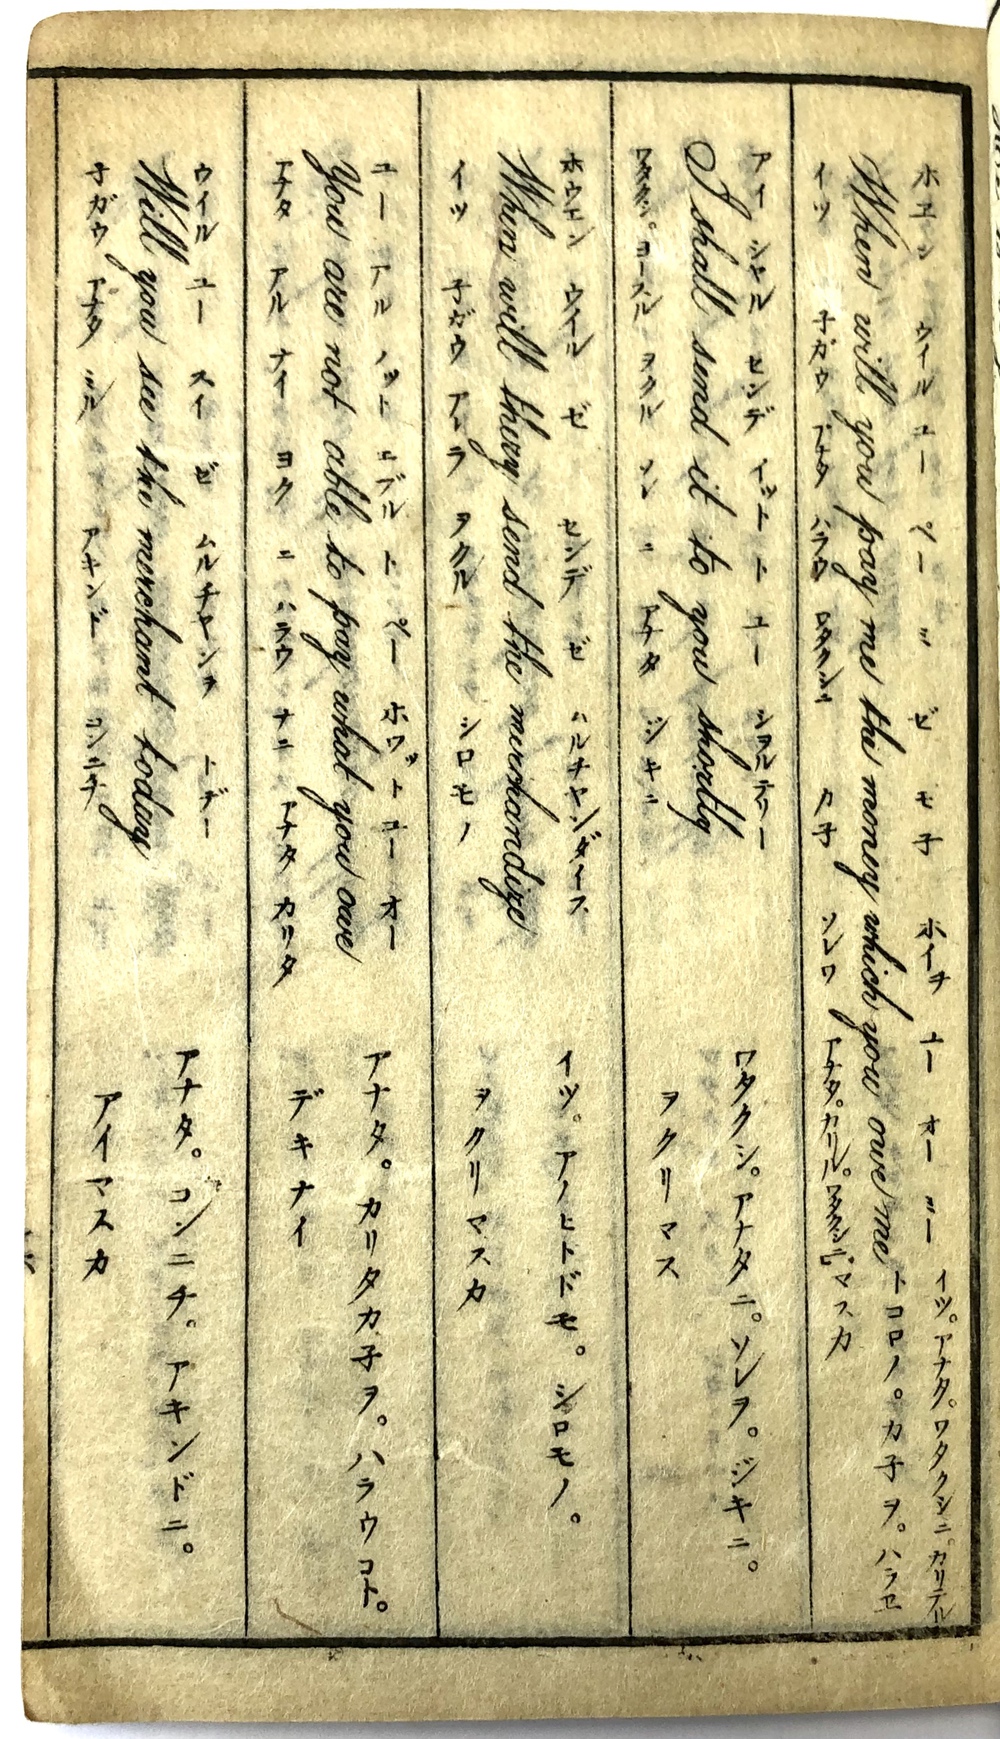 ホエン ウイル ユー ペー ミ ゼ モ子 ホイチ ユー オー ミー
When will you pay me the money which you owe me
イツ 子ガウ アナタ ハラウ ワタクシニ カ子 ソレワ アナタ。カリル。ワタクシニ
イツ。アナタ。ワタクシニ。カリテル
トコロノ。カ子ヲ。ハラヱ
マスカ
アイ シャル センデ イット ト ユー シヨルテリー
I shall send it to you shortly
ワタクシ。ヨースル ヲクル ソレ ニ アナタ ジキニ
ワタクシ。アナタニ。ソレヲ。ジキニ。
ヲクリマス
ホウエン ウイル ゼ センデ ゼ ハルチヤンダイス
When will they send the merchandize
イツ 子ガウ アレラ ヲクル シロモノ
イツ。アノヒトドモ。シロモノ。
ヲクリマスカ
ユー アル ノット エブル ト ペー ホワット ユー オー
You are not able to pay what you owe
アナタ アル ナイ ヨク ニ ハラウ ナニ アナタ カリタ
アナタ。カリタカ子ヲ。ハラウコト。
デキナイ
ウイル ユー スイ ゼ ムルチヤンヲ トデー
Will you see the merchant today
子ガウ アナタ ミル アキンド コンニチ
アナタ。コンニチ。アキンドニ。
アイマスカ